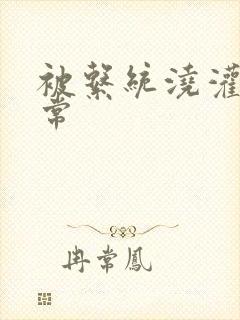 被繫統澆灌
常
冉常鳳